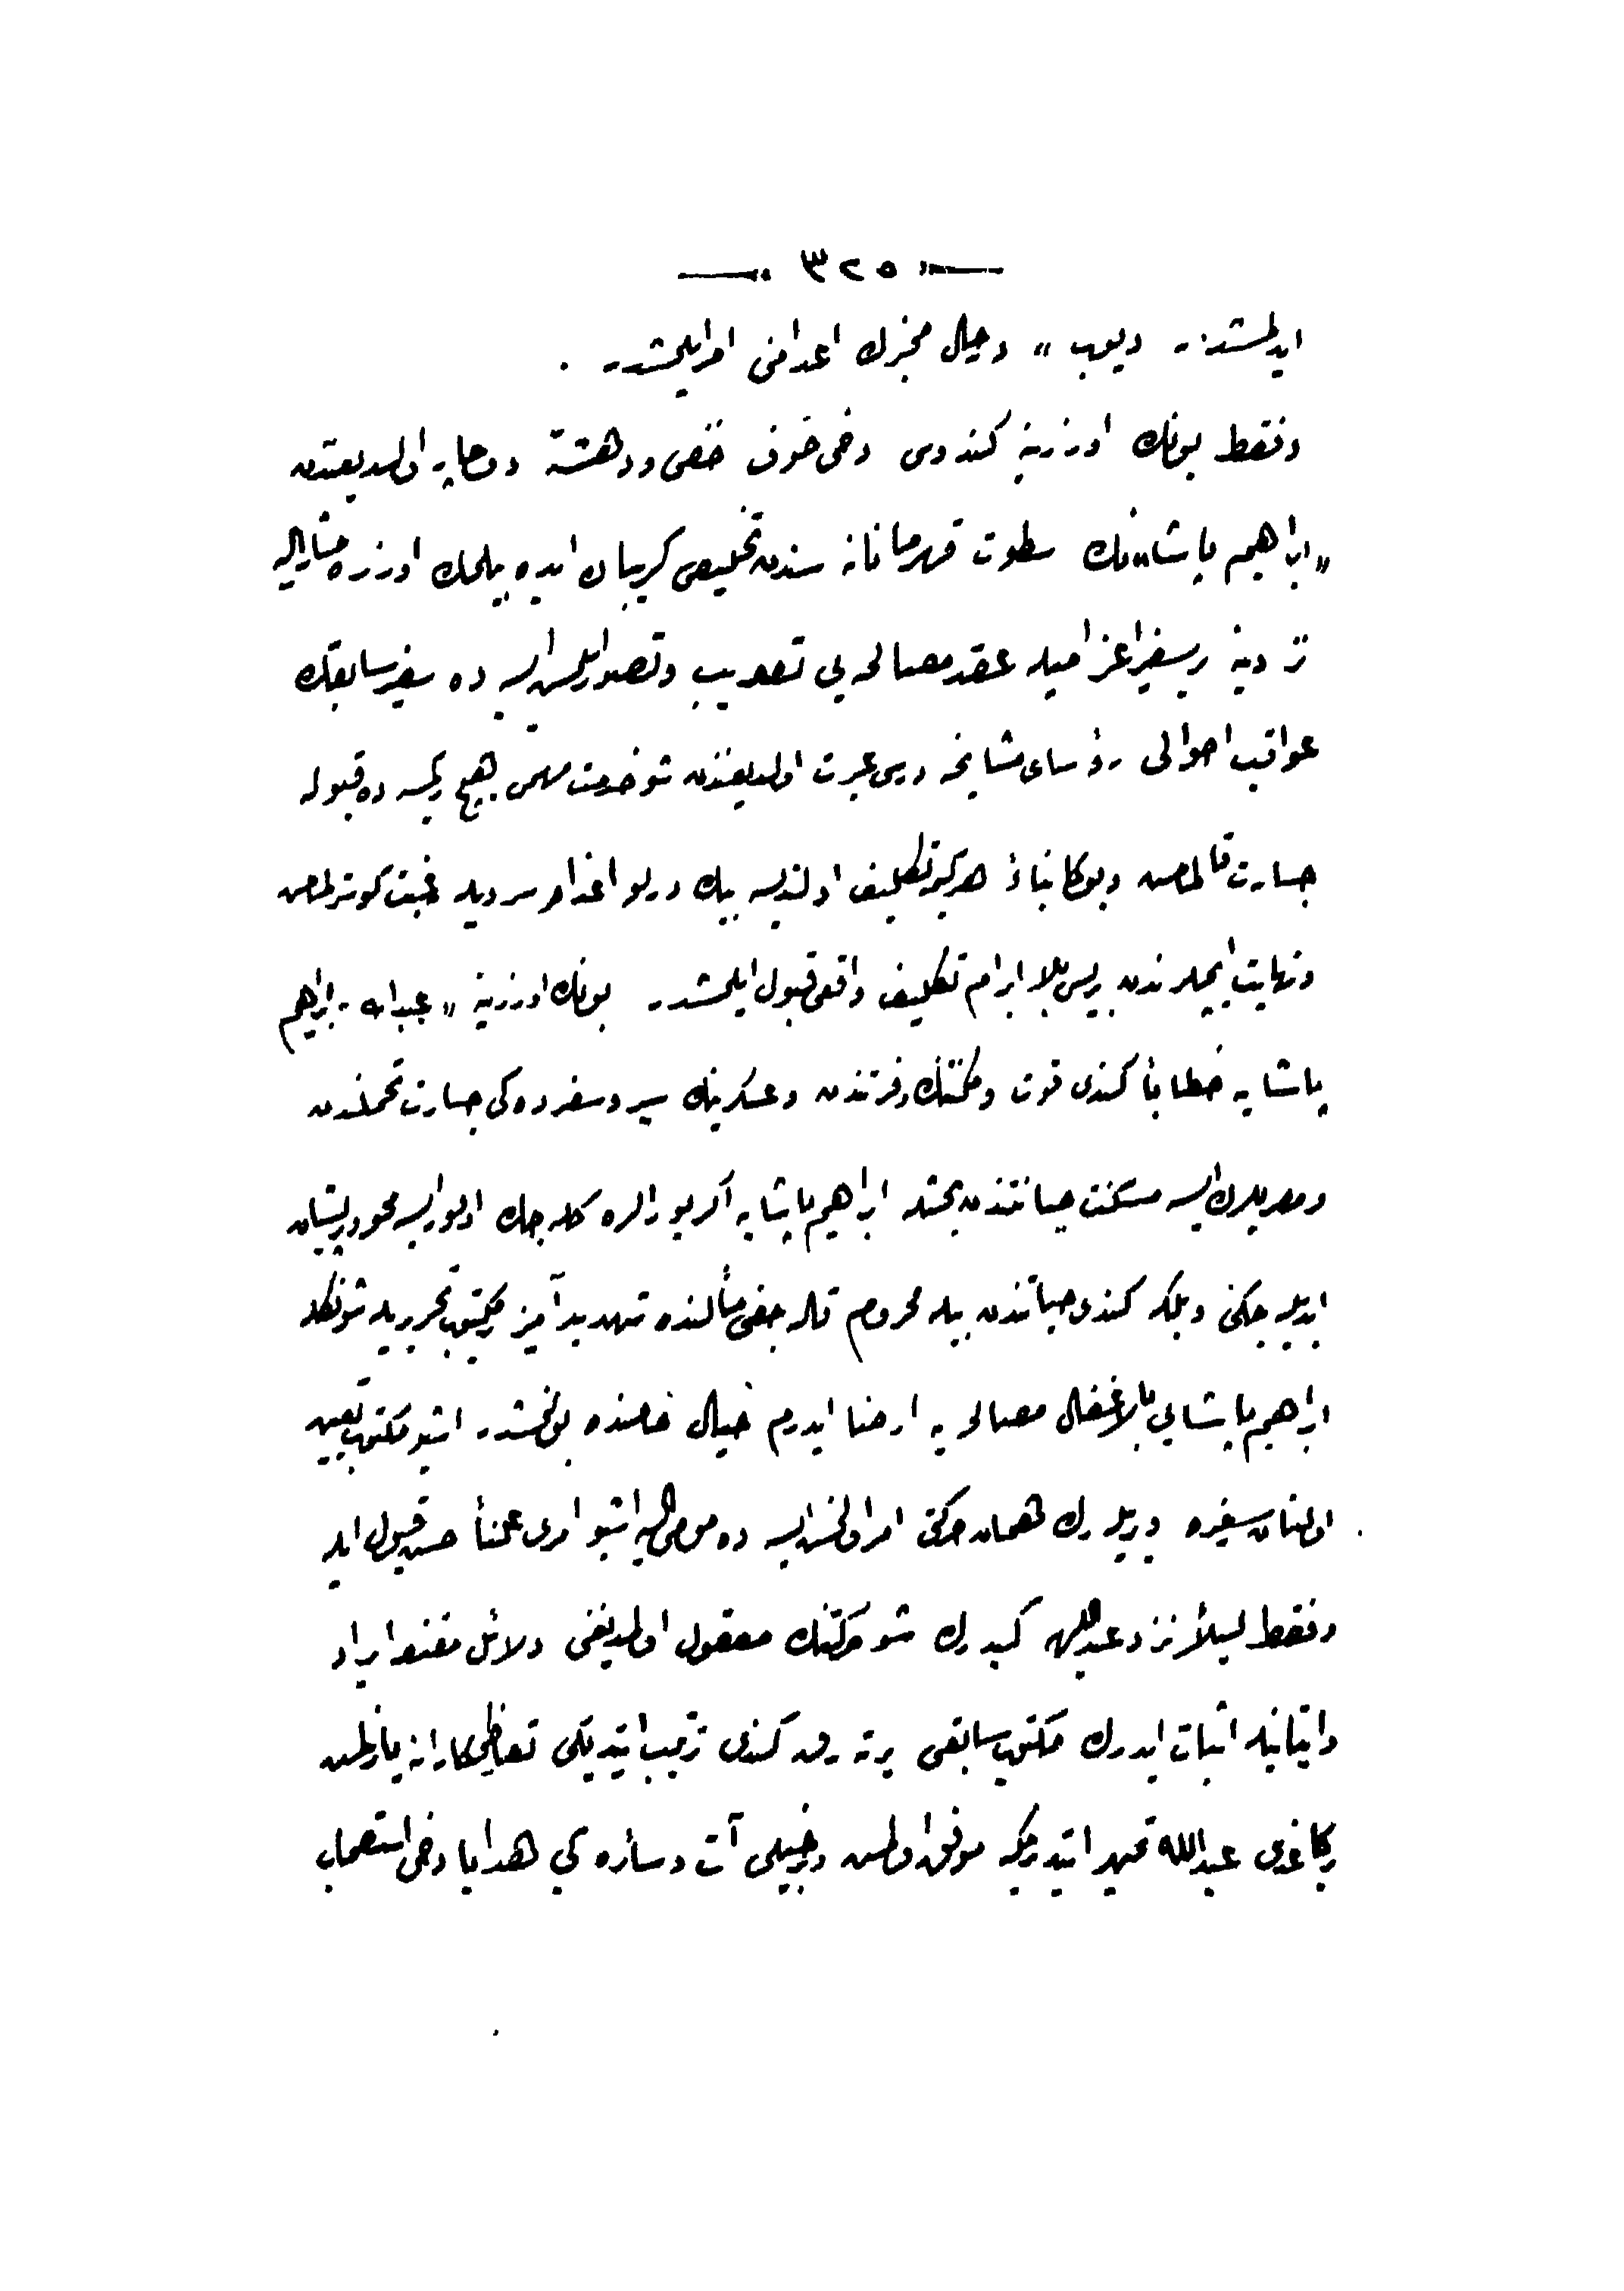 — ٣٢٥ —
ایدلمشدر. دیوب » درحال مخبرك اعدامنی امر ایلمشدر .
وفقط بونك اوزرینه كندوسی دخی خوف خفی ودهشته دوچار اولدیغندن
« ابراهیم پاشا » نك سطوت قهرماناته سندن تخلیص كریبان ایده بیلمك اوزره مشارالیه
نزدینه بر سفیر اعزامیله عقد مصالحه یی تصویب وتصور ایلمش ایسه ده سفیر سابقك
عواقب احوالی رؤسای مشایخه درس عبرت اولدیغندن شو خدمت مهمی هیچ بر كمسه ده قبوله
جسارت قالمامش وبوكا بناءً هر كیمه تكلیف اولندیسه بیك درلو اعذار سردیله رغبت كوسترلمامش
ونهایت ایچلرندن بریسی بلا ابرام تكلیف واقعی قبول ایلمشدر بونك اوزرینه « عبدالله » ابراهیم
پاشایه خطاباً كندی قوت ومكنتنك وفرتندن وعسكرینك سیر وسفرده كی جسارت تحملندن
ومصریلرك ایسه مسكنت جبانتندن بحثله ابراهیم پاشایه اكر بورالره كله جك اولور ایسه محو وپریشان
ایدیله جكنی وبلكه كندی حیاتندن بیله محروم قاله جغی مألنده تهدیدآمیز بر مكتوب تحریریله شونكله
ابراهیم پاشایی بالاغفال مصالحه یه ارضا ایدرم خیال خامنده بولنمشدر اشبو مكتوب تعیین
اولنان سفیره ویریلرك همان حركتی امر اولنمش ایسه ده مومی الیه اشبو امری علناً حسن قبول ایله
وفقط لیلاً نزد عبداللهه كیدرك شو حركتنك معقول اولمدیغنی دلائل مقنعه ایراد
واتیانیله اثبات ایدرك مكتوب سابقی یرته رق كندی ترتیب ایتدیكی تعظیمكارانه یازلمش
بر كاغدی عبدالله تمهیر ایتدیرمكه موفق اولمش وبر خیلی آت وسائره كبی هدایا دخی استصحاب